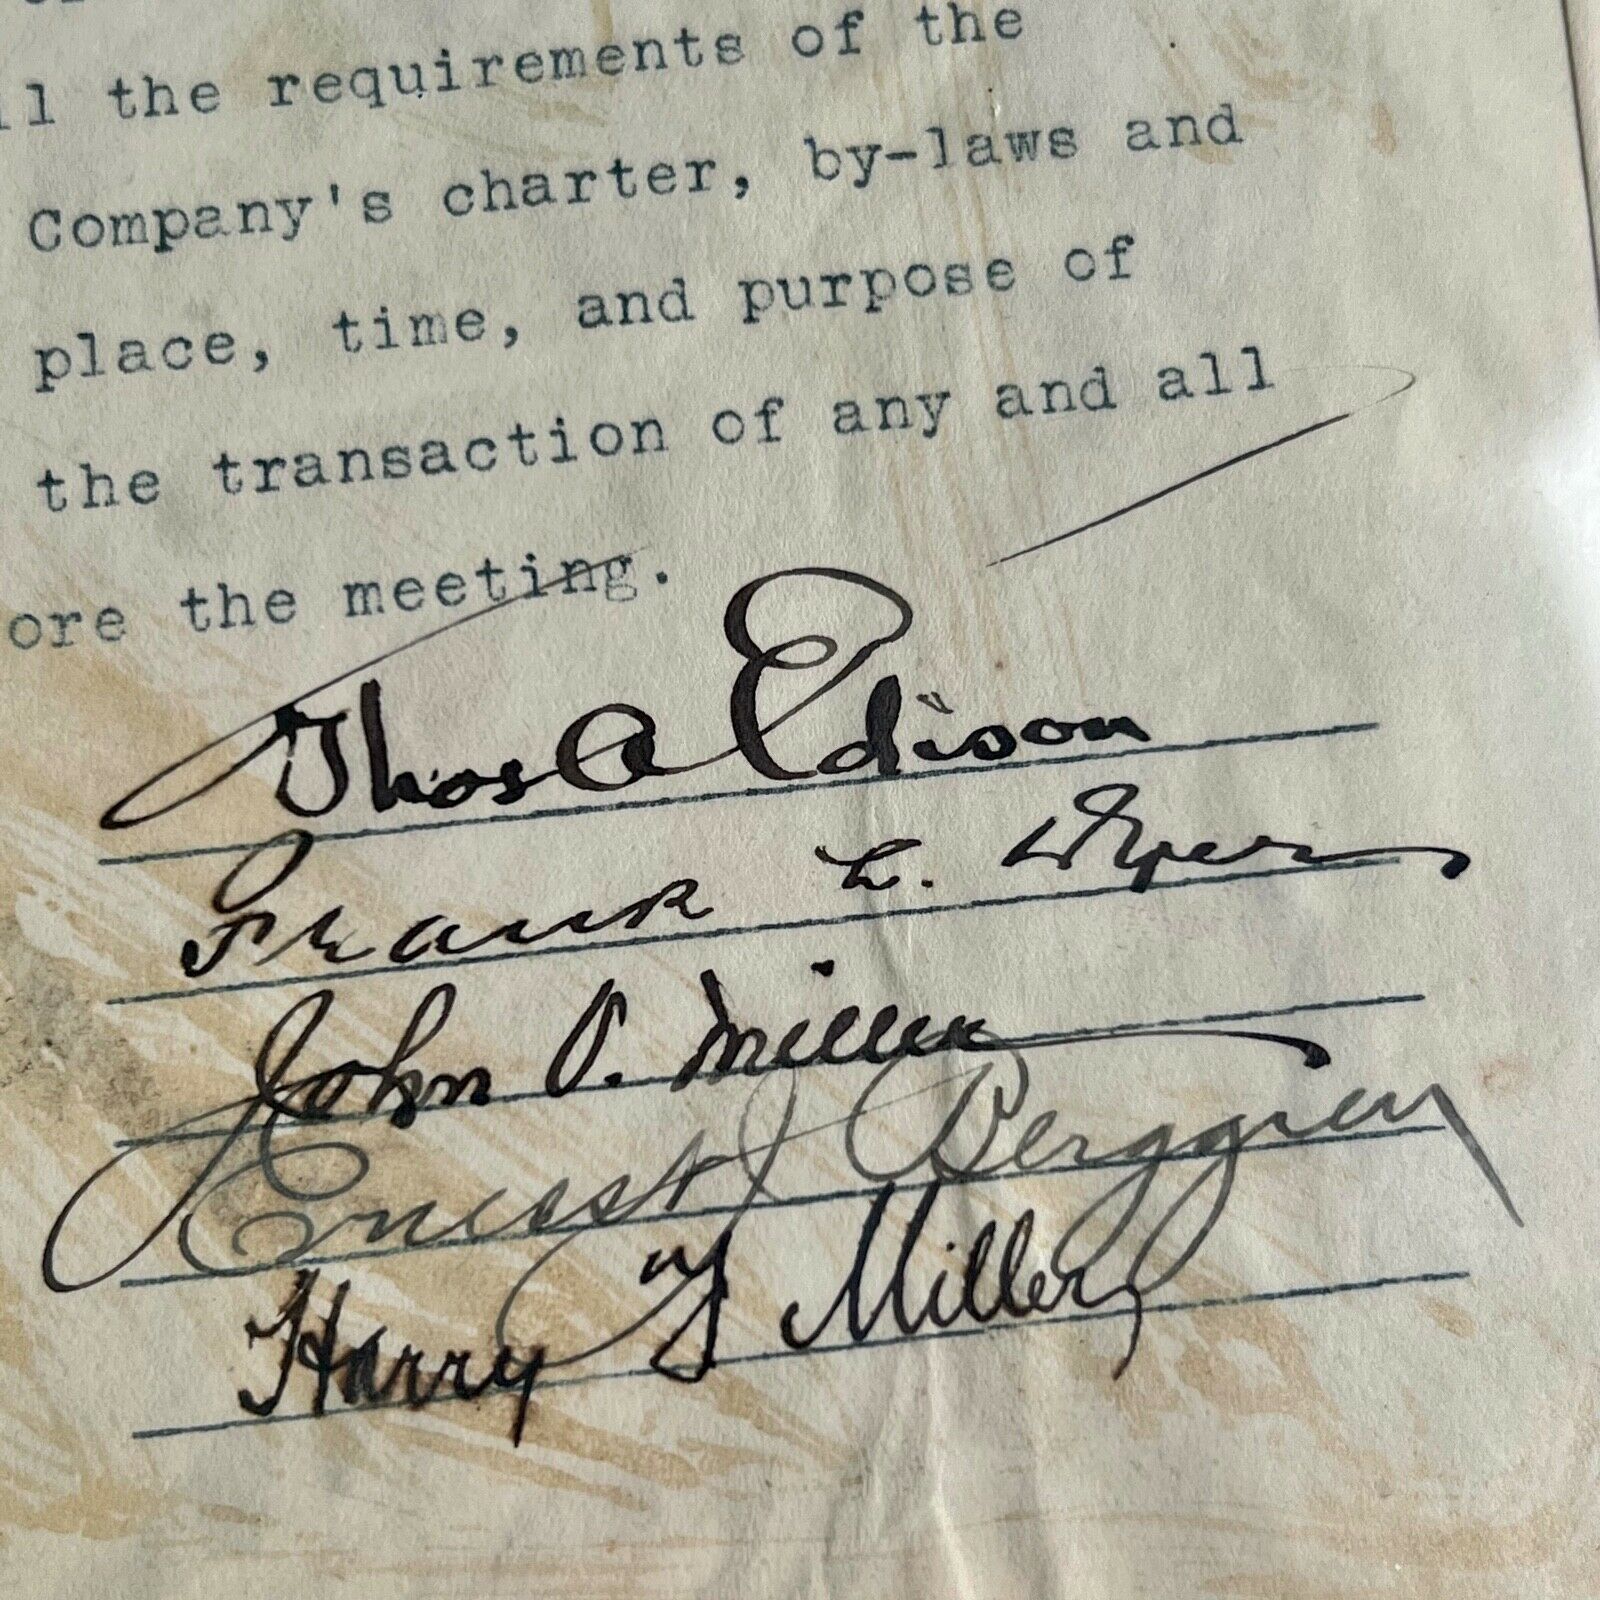 ll the requirements of the
Company's charter, by-laws and
place, time, and purpose of
the transaction of any and all
ore the meeting.
Thos A Edison
Frank L. Dyer
John V. Miller
Ernest J Berggren
Harry F Miller